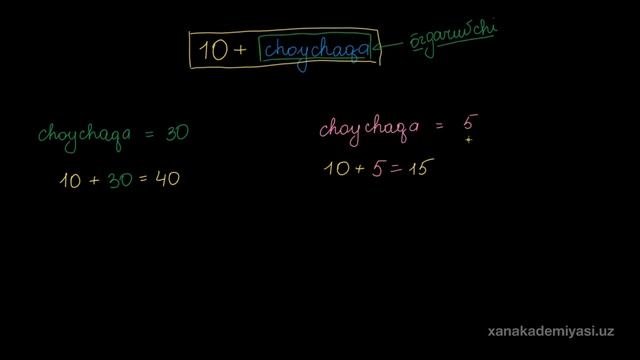 10 + choychaqa
o'zgaruvchi
choychaqa = 30
10 + 30 = 40
choychaqa = 5
10 + 5 = 15
xanakademiyasi.uz